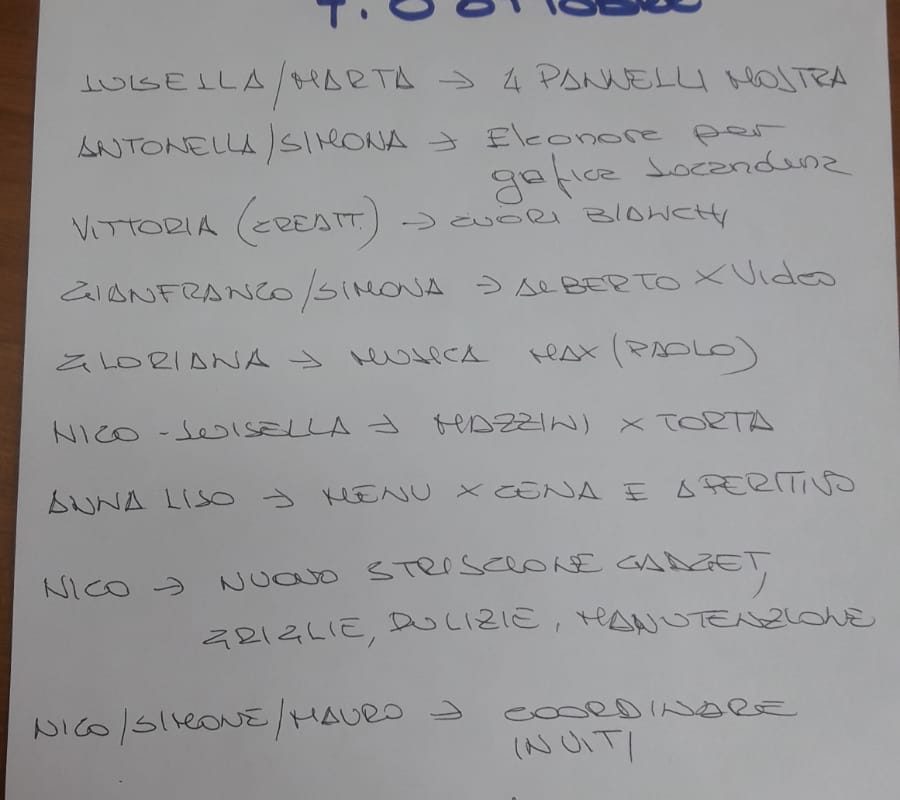 LUISELLA/MARTA → 4 PANNELLI MOSTRA
ANTONELLA/SIMONA → Eleonora per
grafica locandina
VITTORIA (CREATT.) → CUORI BIANCHI
GIANFRANCO/SIMONA → ALBERTO X Video
GLORIANA → MUSICA MAX (PAOLO)
NICO - LUISELLA → MAZZINI X TORTA
ANNA LISO → MENU X CENA E APERITIVO
NICO → NUOVO STRISCIONE GADGET,
GRIGLIE, PULIZIE, MANUTENZIONE
NICO/SIMONE/MAURO → COORDINARE
INVITI